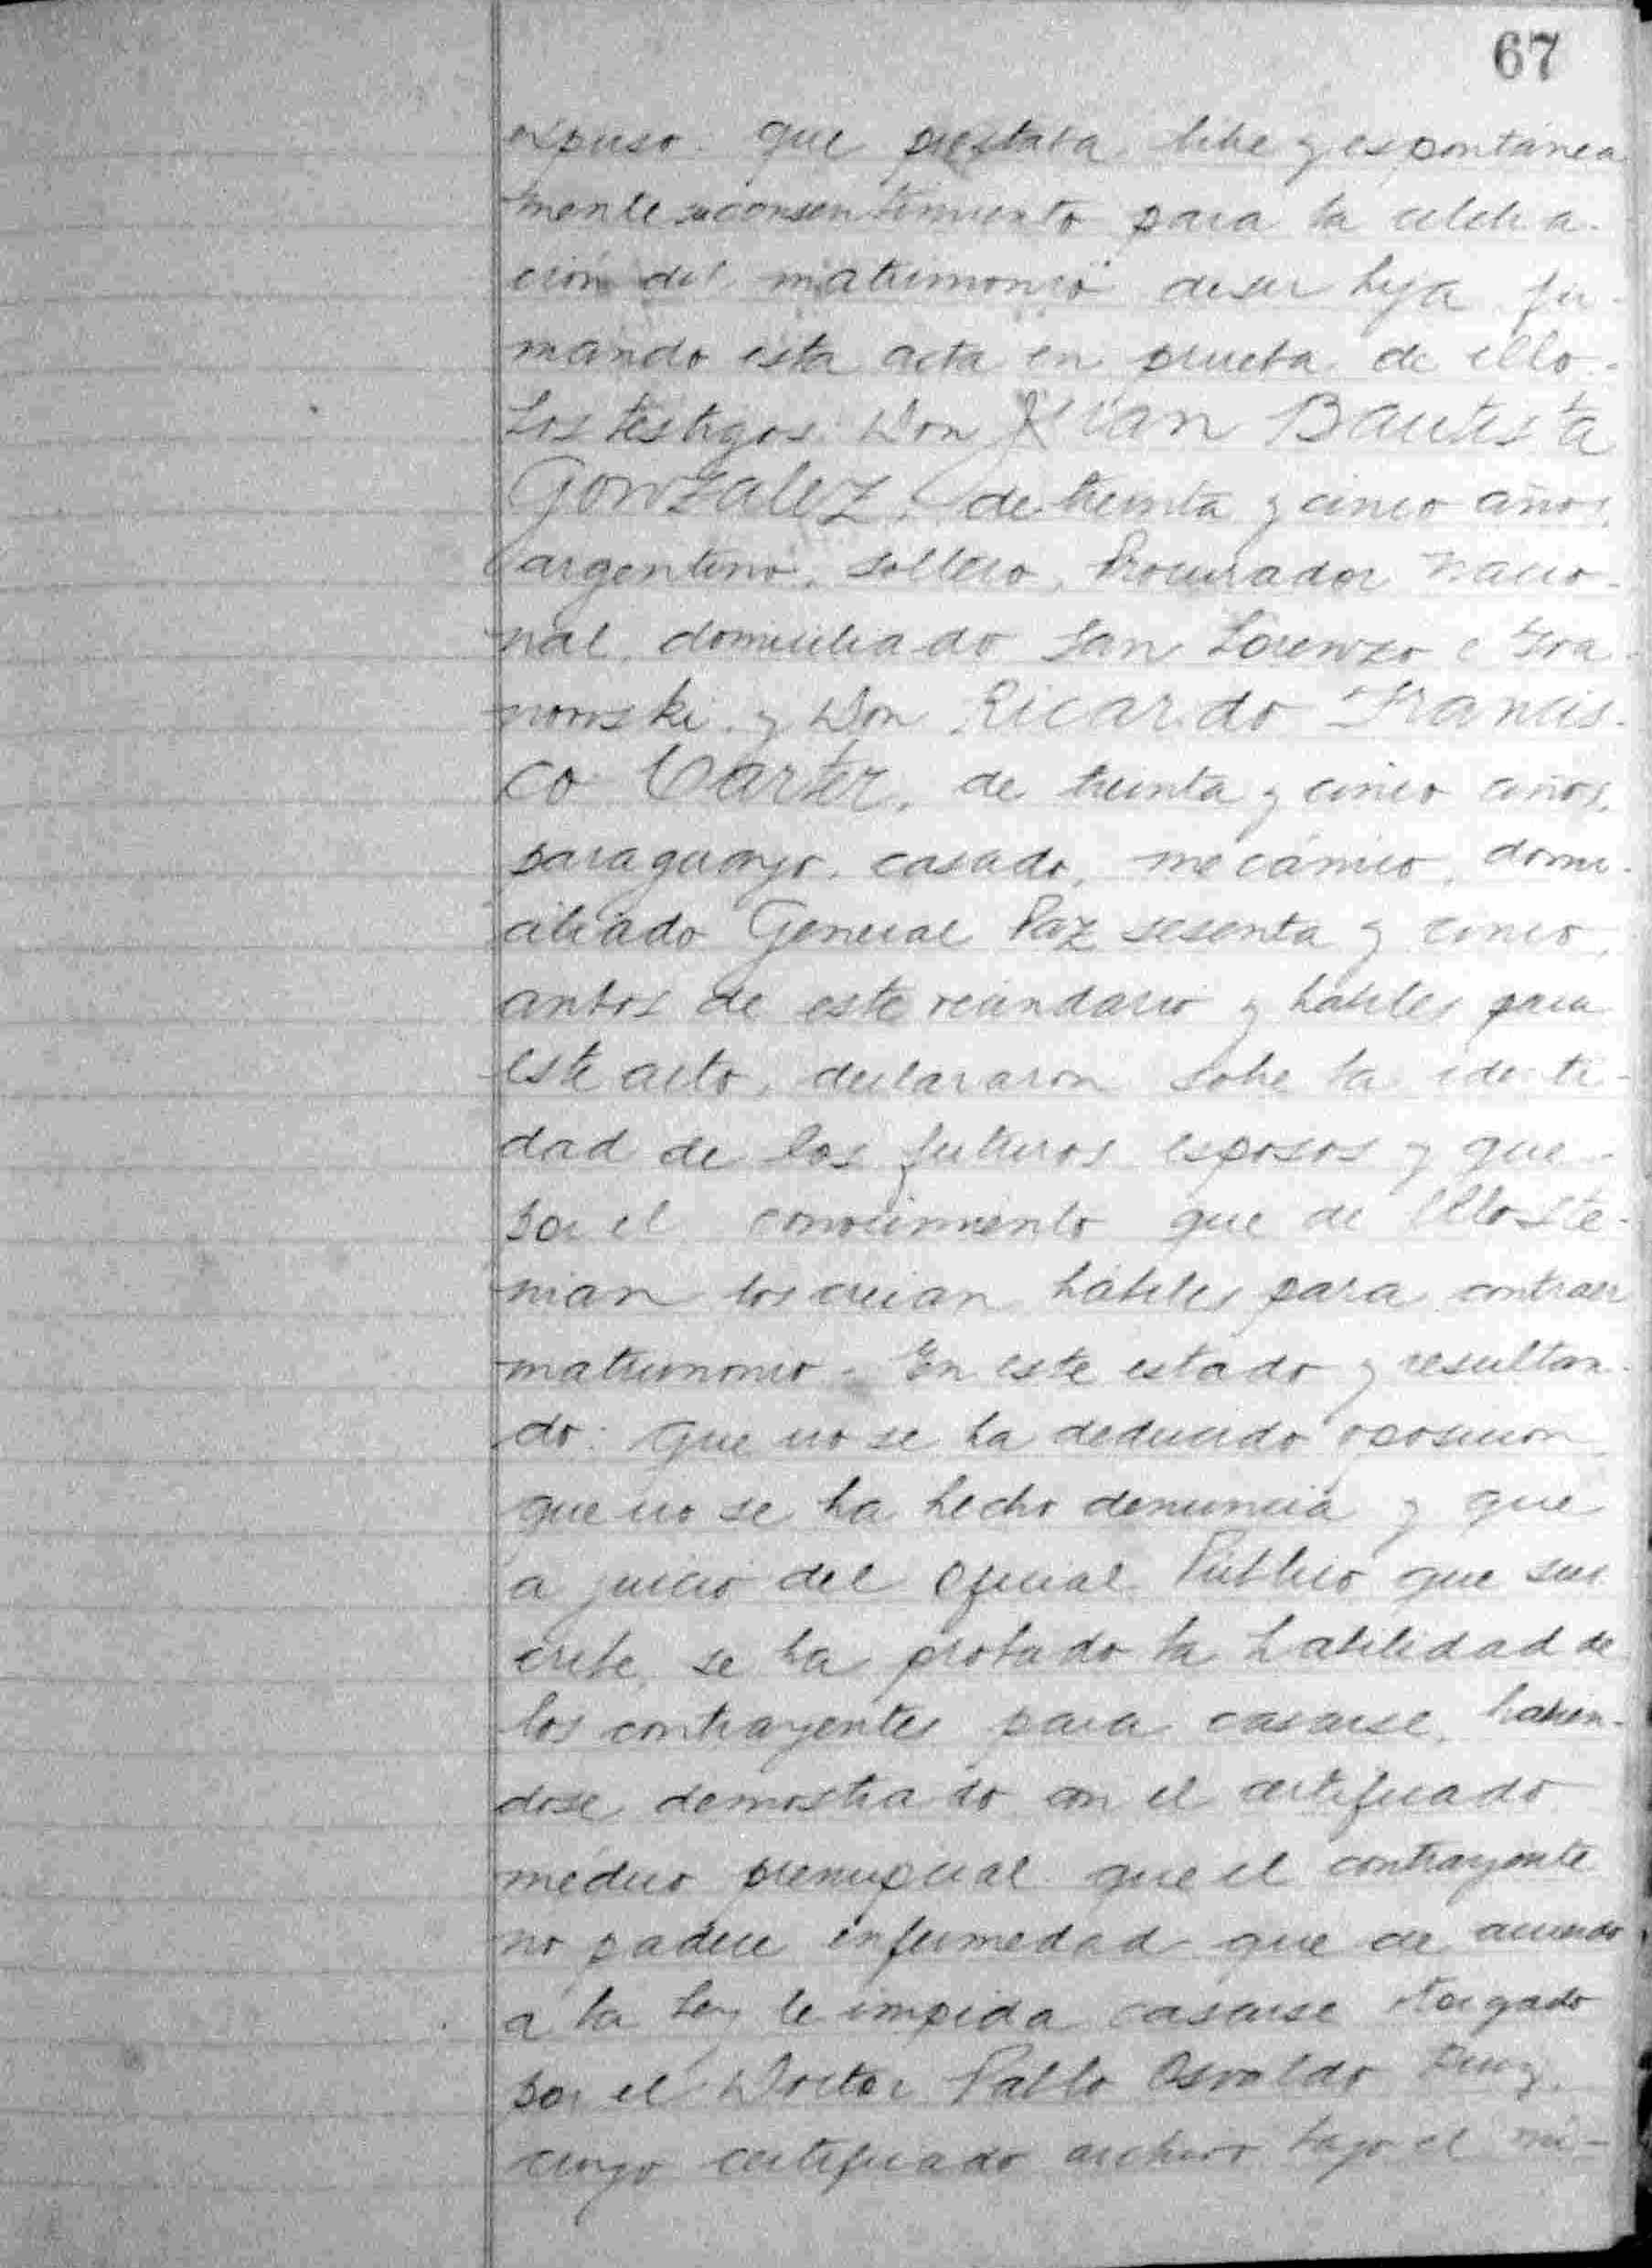 67
expuso: que prestaba libre y espontánea
mente su consentimiento para la celebra-
ción del matrimonio de su hija fir-
mando esta acta en prueba de ello.-
Los testigos: Don Juan Bautista
Gonzalez, de treinta y cinco años,
argentino, soltero, Procurador nacio-
nal, domiciliado San Lorenzo e
y Don Ricardo Francis-
co Carter, de treinta y cinco años,
paraguayo, casado, mecánico, domi-
ciliado General Paz sesenta y cinco,
ambos de este vecindario y hábiles para
este acto, declararon sobre la identi-
dad de los futuros esposos y que
por el conocimiento que de ellos te-
nian los creian hábiles para contraer
matrimonio.- En este estado y resultan-
do: Que no se ha deducido oposicion,
que no se ha hecho denuncia y que
a juicio del Oficial Público que sus
cribe, se ha probado la habilidad de
los contrayentes para casarse, habien-
dose demostrado con el certificado
médico prenupcial que el contrayente
no padece enfermedad que de acuerdo
a la Ley le impida casarse otorgado
por el Doctor Pablo Osvaldo
cuyo certificado archivo bajo el nú-